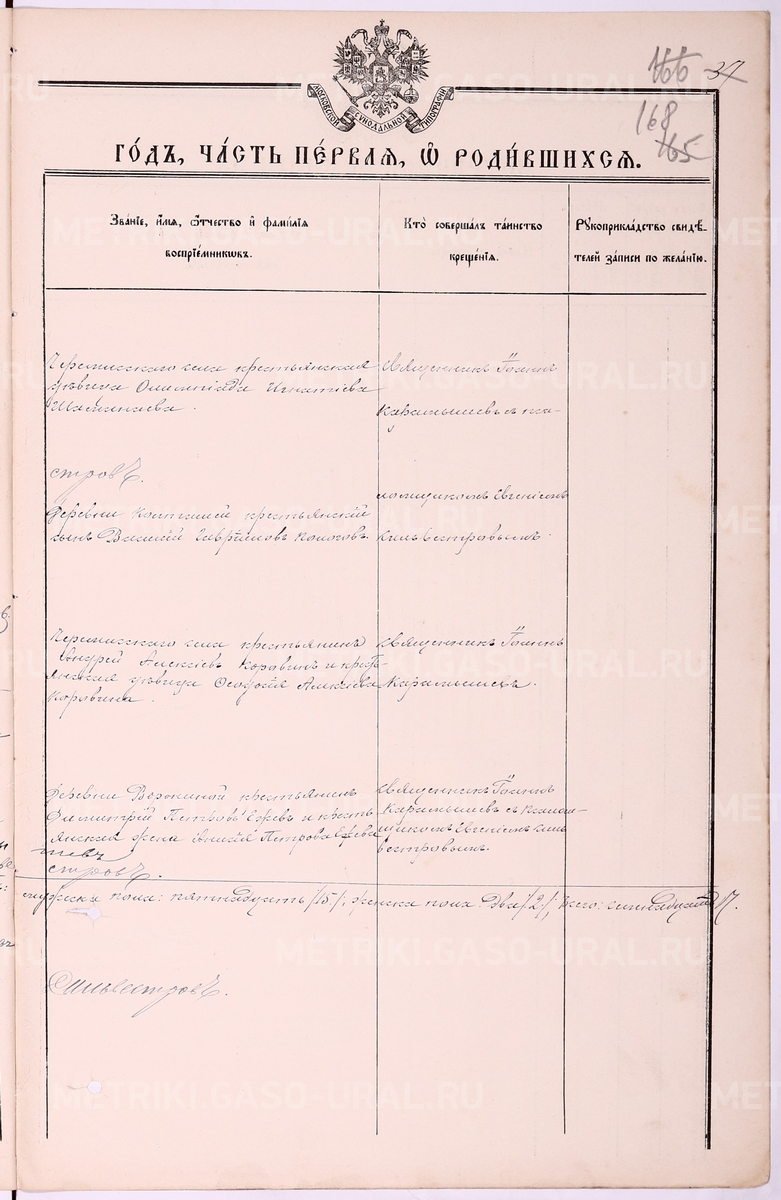 166 37
168
165
МОСКОВСКОЙ СѴНОДАЛЬНОЙ ТИПОГРАФІИ
ГО́ДЪ, ЧА́СТЬ ПЕ́РВАѦ, Ѽ РОДИ́ВШИХСѦ.
Зва́нїе, и҆́мѧ, ѻ҆́тчество и҆ фами́лїѧ
воспрїе́мникѡвъ.
Кто̀ соверша́лъ та́инство
креще́нїѧ.
Рꙋкоприкла́дство свидѣ́-
телей за́писи по жела́нїю.
Черемисскаго села крестьянская
дѣвица Олимпіада Игнатіева
Шаманаева.
Священникъ Іоаннъ
Карамышевъ съ пса-
стровъ.
Деревни крестьянскій
сынъ Василій Гавріиловъ
ломщикомъ Евгеніемъ
Сильвестровымъ.
Черемисскаго села крестьянинъ
Андрей Алексіевъ Коровинъ и кресть-
янская дѣвица Ѳеодосія Алексіева
Коровина.
Священникъ Іоаннъ
Карамышевъ.
Деревни Ворониной крестьянинъ
Димитрій Петровъ Ежевъ и кресть-
янская жена Петрова Ежева
Священникъ Іоаннъ
Карамышев съ псалом-
щикомъ Евгеніемъ Силь
вестровымъ.
стровъ.
мужска пола: пятнадцать /15/, женска пола: два /2/, всего: семнадцать 17.
Сильвестровъ.
METRIKI.GASO-URAL.RU